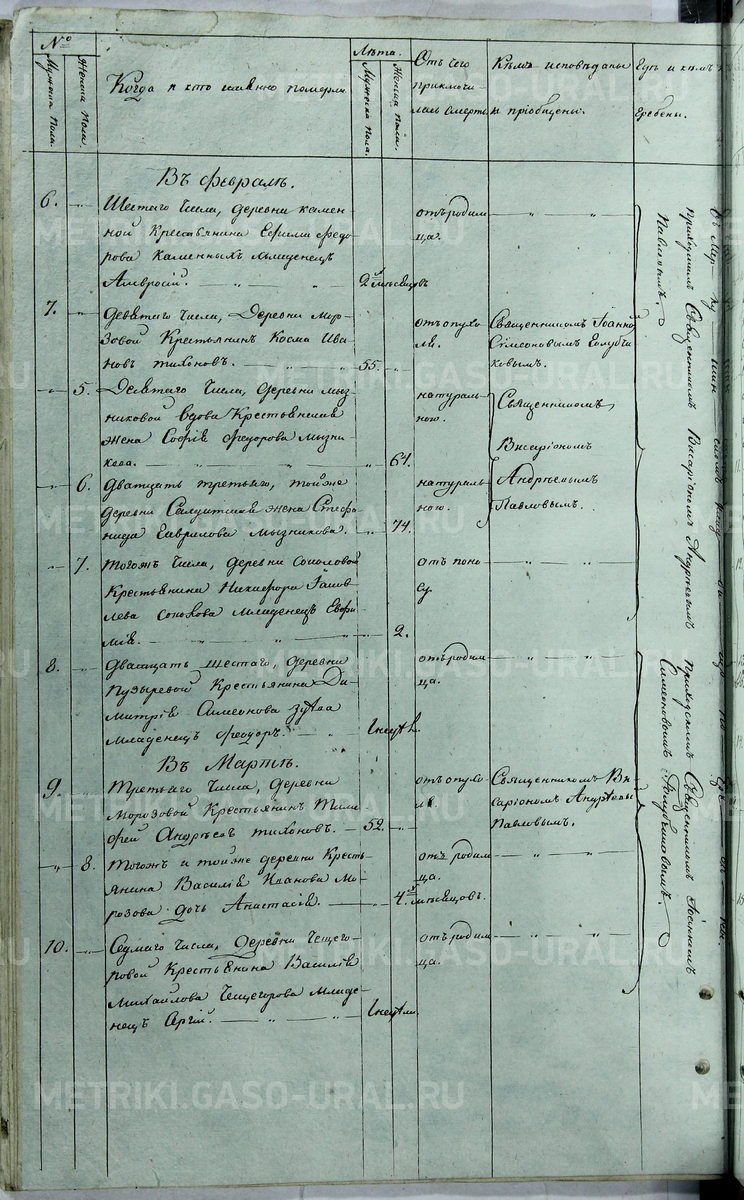 №
Мужеска пола.
Женска пола.
Когда и кто имянно померли.
Лѣта.
Мужеска пола.
Женска пола.
Отъ чего приключилась смерть.
Кѣмъ исповѣданы и пріобщены.
Гдѣ и кѣмъ погребены.
Въ февралѣ.
6. Шестаго числа, деревни камен-
ной Крестьянина Ефима Федо-
рова Каменныхъ младенецъ
Амвросий. 2хъ мѣсяцовъ
отъ родим-
ца.
7. Девятаго числа, Деревни Мор-
зовой Крестьянинъ Косма Ива-
новъ тихоновъ. 55.
отъ опухо-
ли.
Священникомъ Іоанно
Симеоновымъ Голубчи-
ковымъ.
5. Десятаго числа, деревни мыз-
никовой вдова Крестьянская
жена Софія Федорова мызни-
кова. 61.
натураль-
ною.
Священникомъ
Висаріономъ
6. Дватцать третьяго, тойже
деревни Салдатская жена Стефа-
нида Гаврилова Мызникова. 74.
натураль-
ною.
Андрѣевымъ
Павловымъ.
7. Тогожъ числа, деревни Соколовой
Крестьянина Никифора Іаков-
лева Соколова младенецъ Евфи-
мія. 2.
отъ поно-
су.
8. Дватцать шестаго, деревни
Пузыревой Крестьянина Ди-
митрія Симеонова зуева
младенецъ Феодоръ. 1 нед
отъ родим-
ца.
Въ Мартѣ.
9. Третьяго числа, деревни
Морозовой Крестьянинъ Тимо-
фей Андрѣевъ тихоновъ. 52.
отъ опухо-
ли.
Священникомъ Ви-
саріономъ Андрѣевы
Павловымъ.
8. Тогожъ и тойже деревни Кресть-
янина Василія Иванова Мо-
розова дочь Анастасія. 4хъ мѣсяцовъ.
отъ родим-
ца.
10. Седмаго числа, Деревни Чещего-
ровой Крестьянина Василія
Михайлова Чещегорова младе-
нецъ Сергій. 1 недели.
отъ родим-
ца.
приходскимъ Священникомъ Висаріономъ Андрѣевымъ
Павловымъ.
приходскимъ Священникомъ Іоанномъ
Симеоновымъ Голубчиковымъ.
METRIKI.GASO-URAL.RU